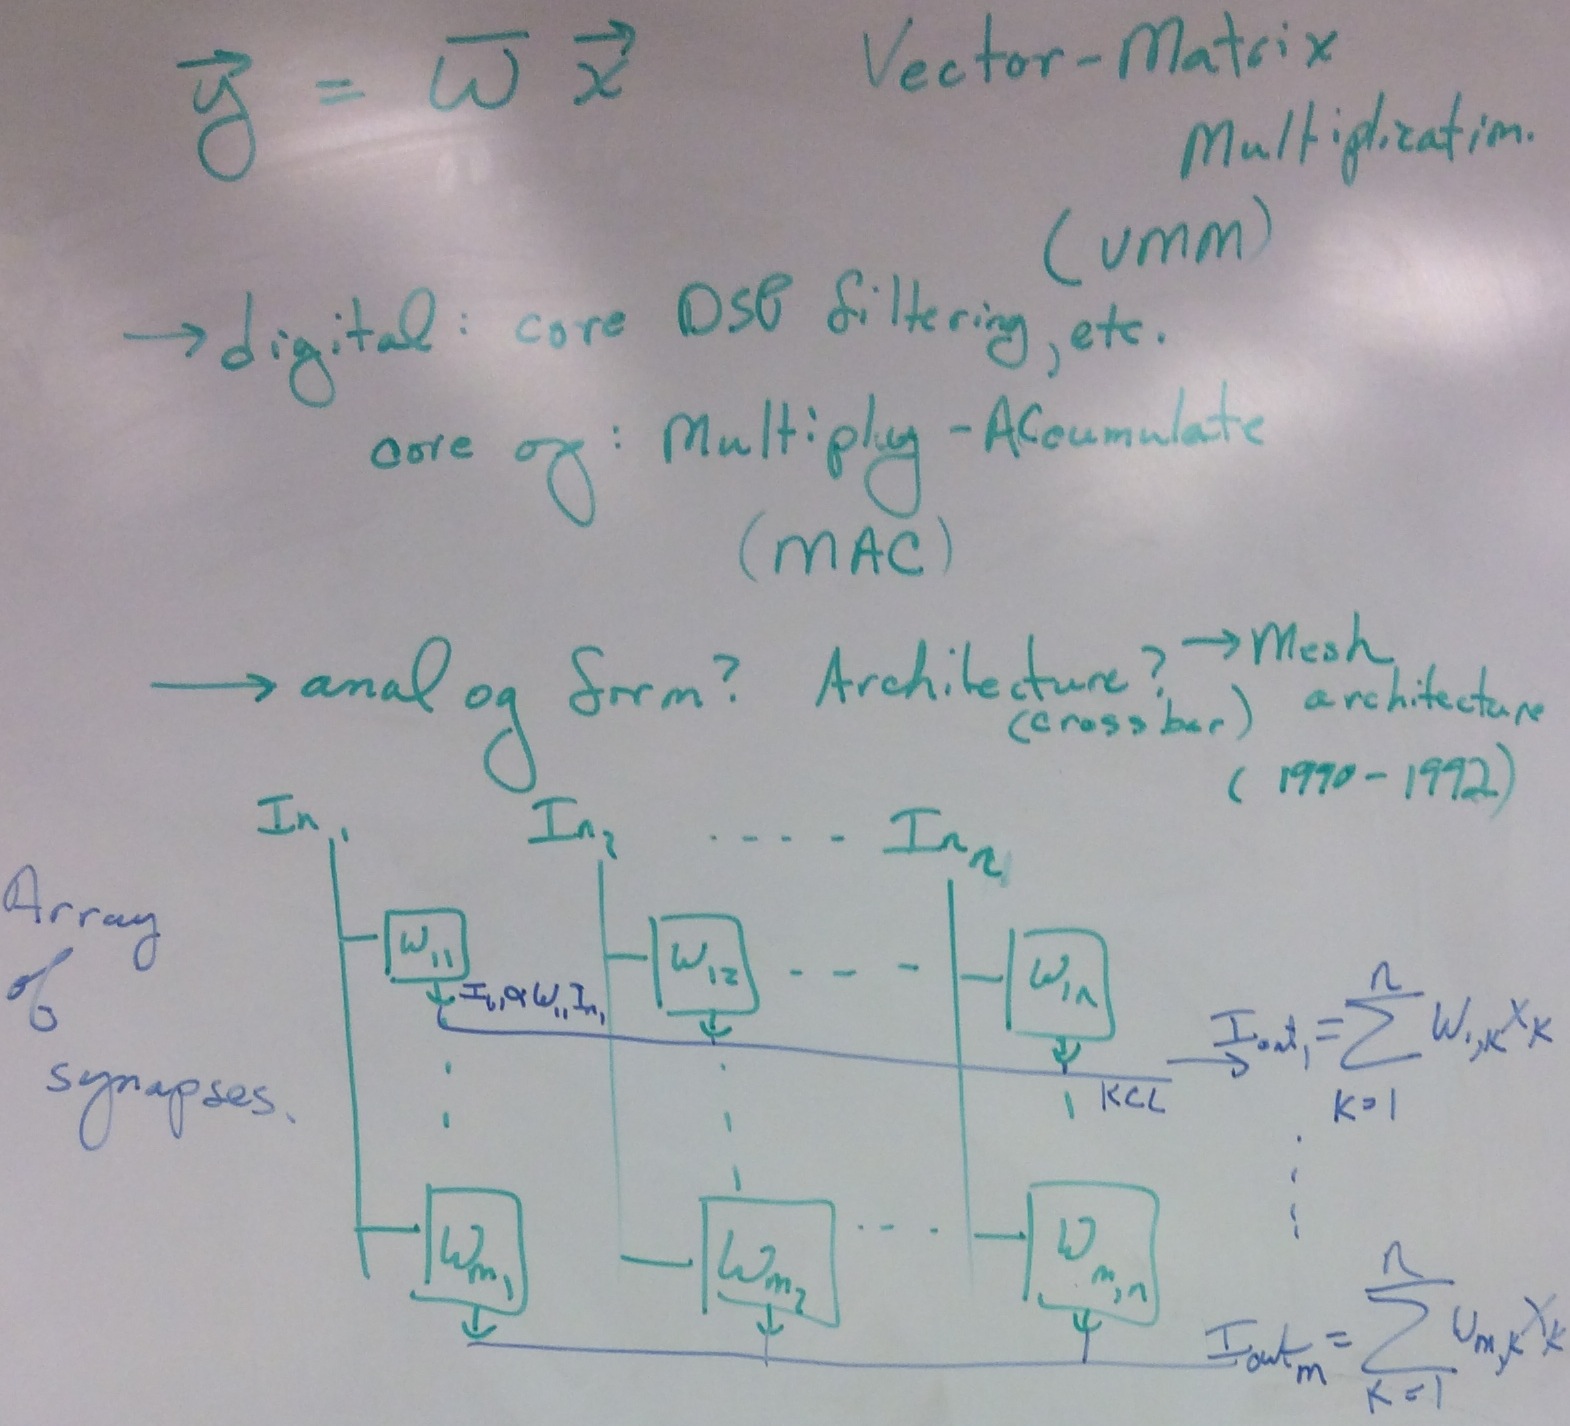 y⃗ = W̄ x⃗
Vector-Matrix
Multiplication.
(VMM)
→ digital: core DSP filtering, etc.
core op: Multiply-ACcumulate
(MAC)
→ analog form? Architecture? → Mesh
(crossbar) architecture
(1990-1992)
In₁ In₂ ---- Inₙ
Array
of
synapses.
W₁₁ W₁₂ --- W₁ₙ
I₁,₁ α W₁₁ In₁
KCL → Iout₁ = Σ W₁,ₖ Xₖ
n
K=1
Wm₁ Wm₂ ---- Wm,n
Ioutm = Σ Wm,K XK
n
K=1